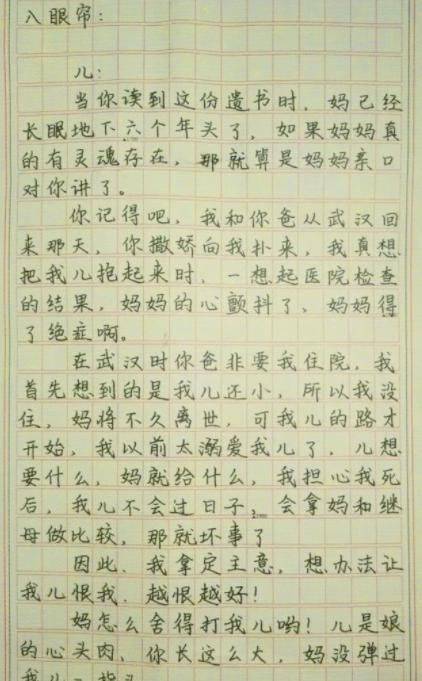 入眼帘：
儿：
当你读到这份遗书时，妈已经
长眠地下六个年头了，如果妈妈真
的有灵魂存在，那就算是妈妈亲口
对你讲了。
你记得吧，我和你爸从武汉回
来那天，你撒娇向我扑来，我真想
把我儿抱起来时，一想起医院检查
的结果，妈妈的心颤抖了，妈妈得
了绝症啊。
在武汉时你爸非要我住院，我
首先想到的是我儿还小，所以我没
住，妈将不久离世，可我儿的路才
开始，我以前太溺爱我儿了，儿想
要什么，妈就给什么，我担心我死
后，我儿不会过日子，会拿妈和继
母做比较，那就坏事了
因此，我拿定主意，想办法让
我儿恨我，越恨越好！
妈怎么舍得打我儿哟！儿是娘
的心头肉，你长这么大，妈没弹过
我儿一指头